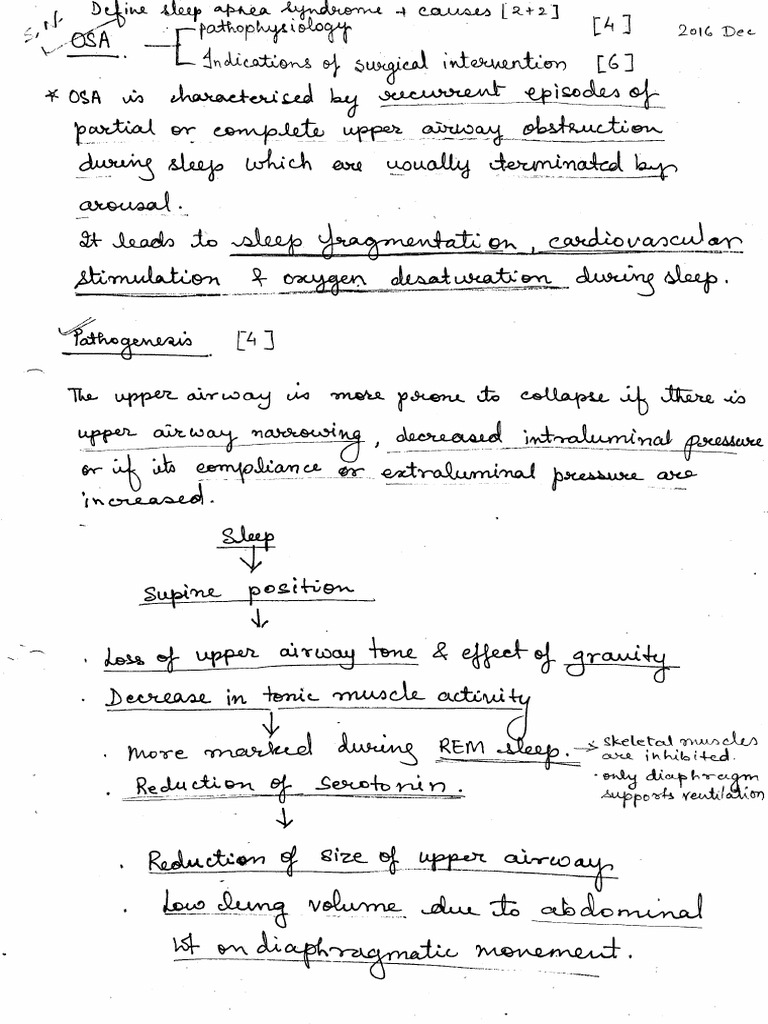 Define sleep apnea syndrome + causes [2+2]
S.N.
OSA
pathophysiology [4]
2016 Dec
Indications of surgical intervention [6]
* OSA is characterised by recurrent episodes of
partial or complete upper airway obstruction
during sleep which are usually terminated by
arousal.
It leads to sleep fragmentation, cardiovascular
stimulation & oxygen desaturation during sleep.
Pathogenesis [4]
The upper airway is more prone to collapse if there is
upper airway narrowing, decreased intraluminal pressure
or if its compliance or extraluminal pressure are
increased.
Sleep
↓
Supine position
↓
. Loss of upper airway tone & effect of gravity
. Decrease in tonic muscle activity
↓
. More marked during REM sleep. → skeletal muscles
are inhibited.
. only diaphragm
supports ventilation
. Reduction of serotonin.
↓
. Reduction of size of upper airway
. Low lung volume due to abdominal
wt on diaphragmatic movement.